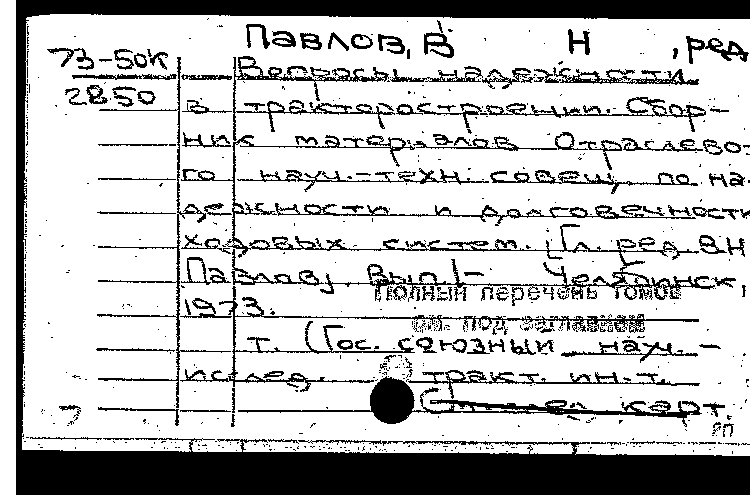 Павлов, В Н , ред
73-50к
Вопросы надежности
2850
в тракторостроении. Сбор-
ник материалов Отраслево-
го науч.-техн. совещ. по на-
дежности и долговечности
ходовых систем. [Гл. ред В.Н
Павлов]. Вып. 1- Челябинск,
Полный перечень томов
1973.
см. под заглавием
т. (Гос. союзный науч.-
исслед. тракт. ин-т.
карт.